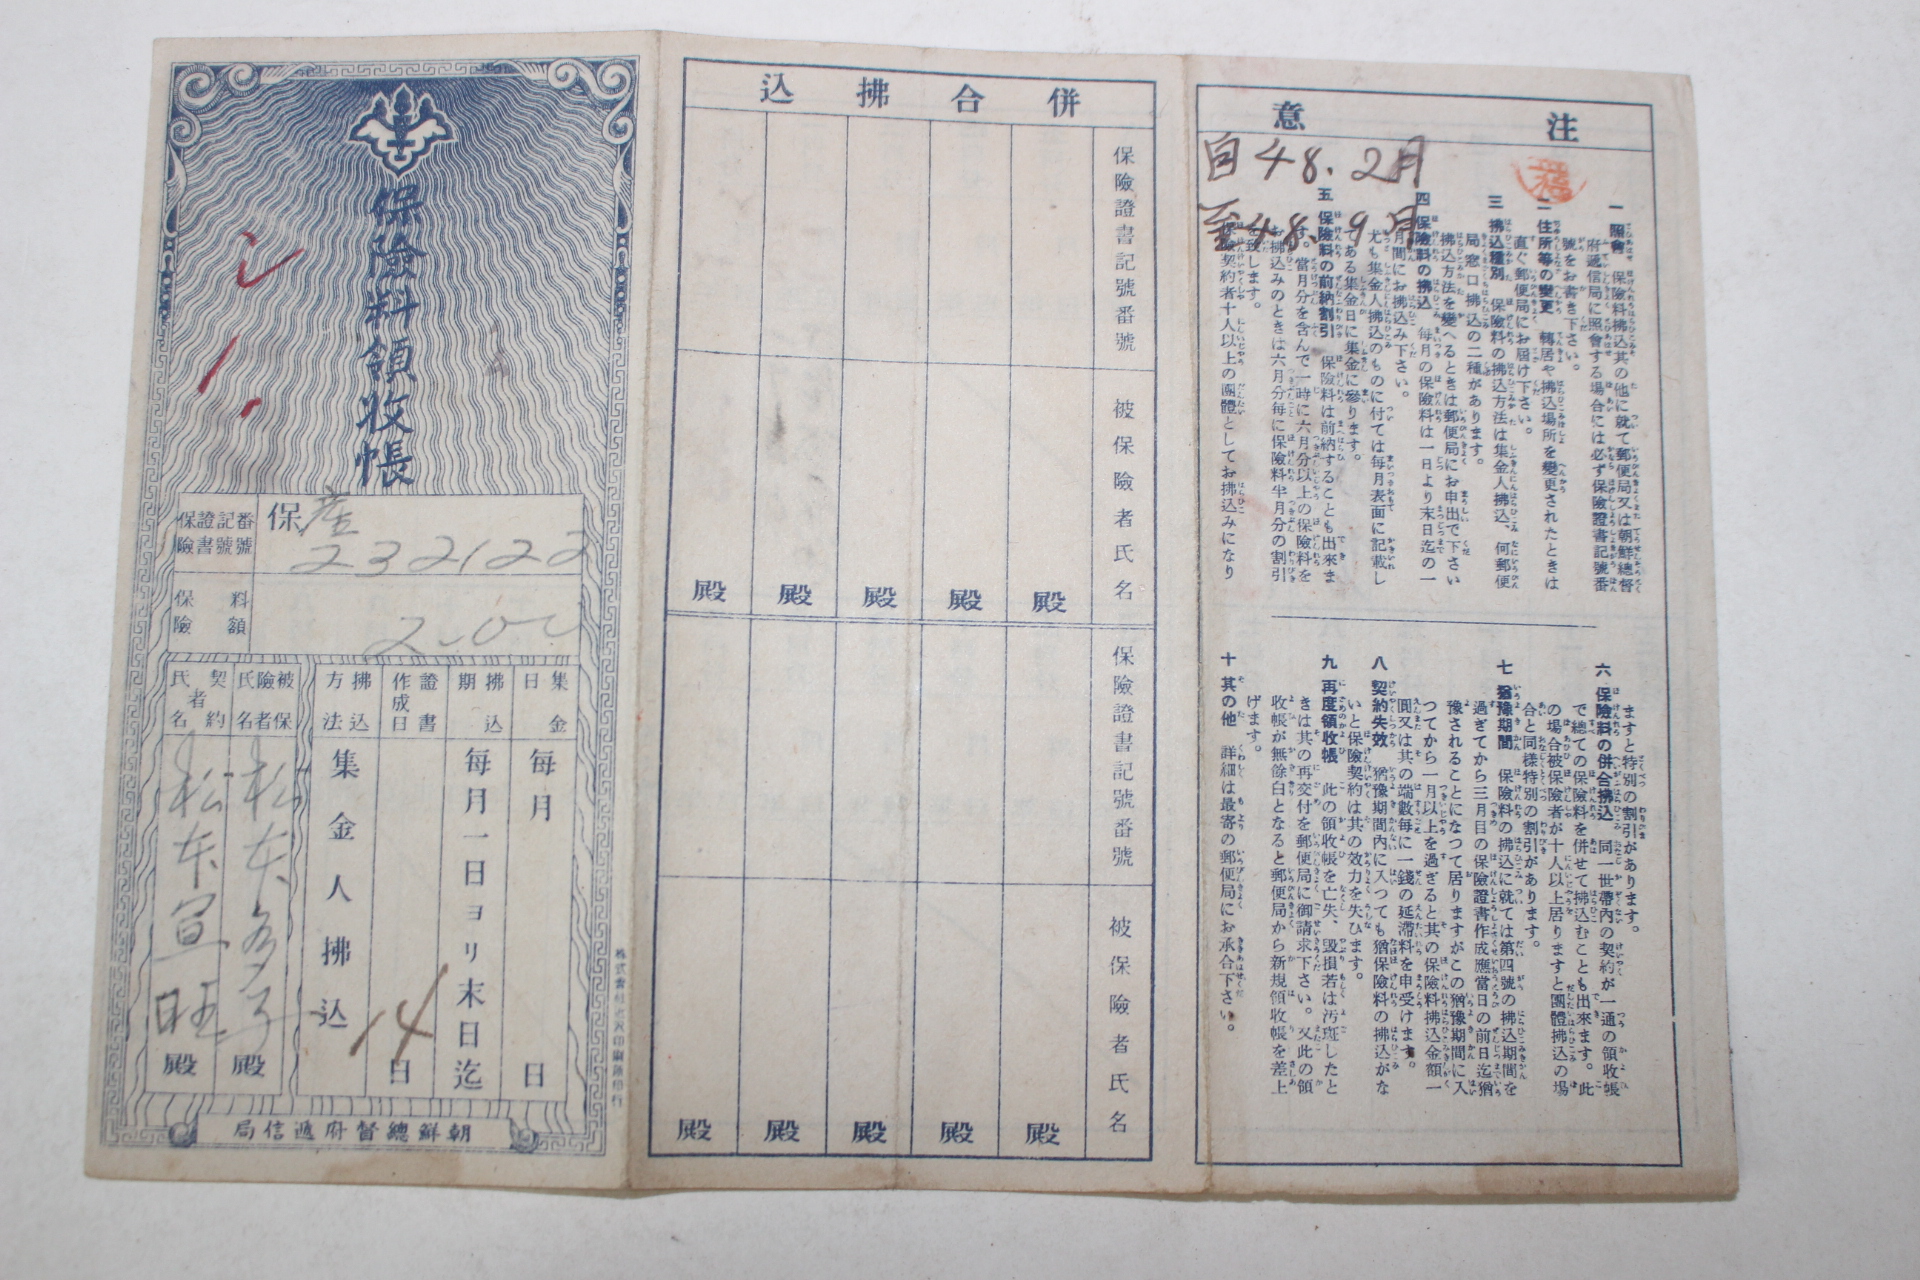 保險料領收帳
保險證書記號番號
保
232122
保險料額
集金日
每月
日
拂込期
每月一日ヨリ末日迄
證書作成日
14
日
拂込方法
集金人拂込
被保險者氏名
殿
契約者氏名
松本宣旺
殿
朝鮮總督府遞信局
併合拂込
保險證書記號番號
被保險者氏名
殿
殿
殿
殿
殿
保險證書記號番號
被保險者氏名
殿
殿
殿
殿
殿
注意
自48.2月
至48.9月
一 照會 保險料拂込其の他に就て郵便局又は朝鮮總督
府遞信局に照會する場合には必ず保險證書記號番
號をお書き下さい。
二 住所等の變更 轉居や拂込場所を變更されたときは
直ぐ郵便局にお屆け下さい。
三 拂込種別 保險料の拂込方法は集金人拂込、何郵便
局窓口拂込の二種があります。
拂込方法を變へるときは郵便局にお申出で下さい
四 保險料の拂込 每月の保險料は一日より末日迄の一
月間にお拂込み下さい。
尤も集金人拂込のものに付ては每月表面に記載し
てある集金日に集金に參ります。
五 保險料の前納割引 保險料は前納することも出來ま
す。當月分を含んで一時に六月分以上の保險料を
お拂込みのときは六月分每に保險料半月分の割引
を致します。
保險契約者十人以上の團體としてお拂込みになり
ますと特別の割引があります。
六 保險料の併合拂込 同一世帶內の契約が一通の領收帳
で總ての保險料を併せて拂込むことも出來ます。此
の場合被保險者が十人以上居りますと團體拂込の場
合と同樣特別の割引があります。
七 猶豫期間 保險料の拂込に就ては第四號の拂込期間を
過ぎてから三月目の保險證書作成應當日の前日迄猶
豫されることになつて居りますがこの猶豫期間に入
つてから一月以上を過ぎると其の保險料拂込金額一
圓又は其の端數每に一錢の延滯料を申受けます。
八 契約失效 猶豫期間內に入つても猶保險料の拂込がな
いと保險契約は其の效力を失ひます。
九 再度領收帳 此の領收帳を亡失、毀損若は汚斑したと
きは其の再交付を郵便局に御請求下さい。又此の領
收帳が無餘白となると郵便局から新規領收帳を差上
げます。
十 其の他 詳細は最寄の郵便局にお承合下さい。